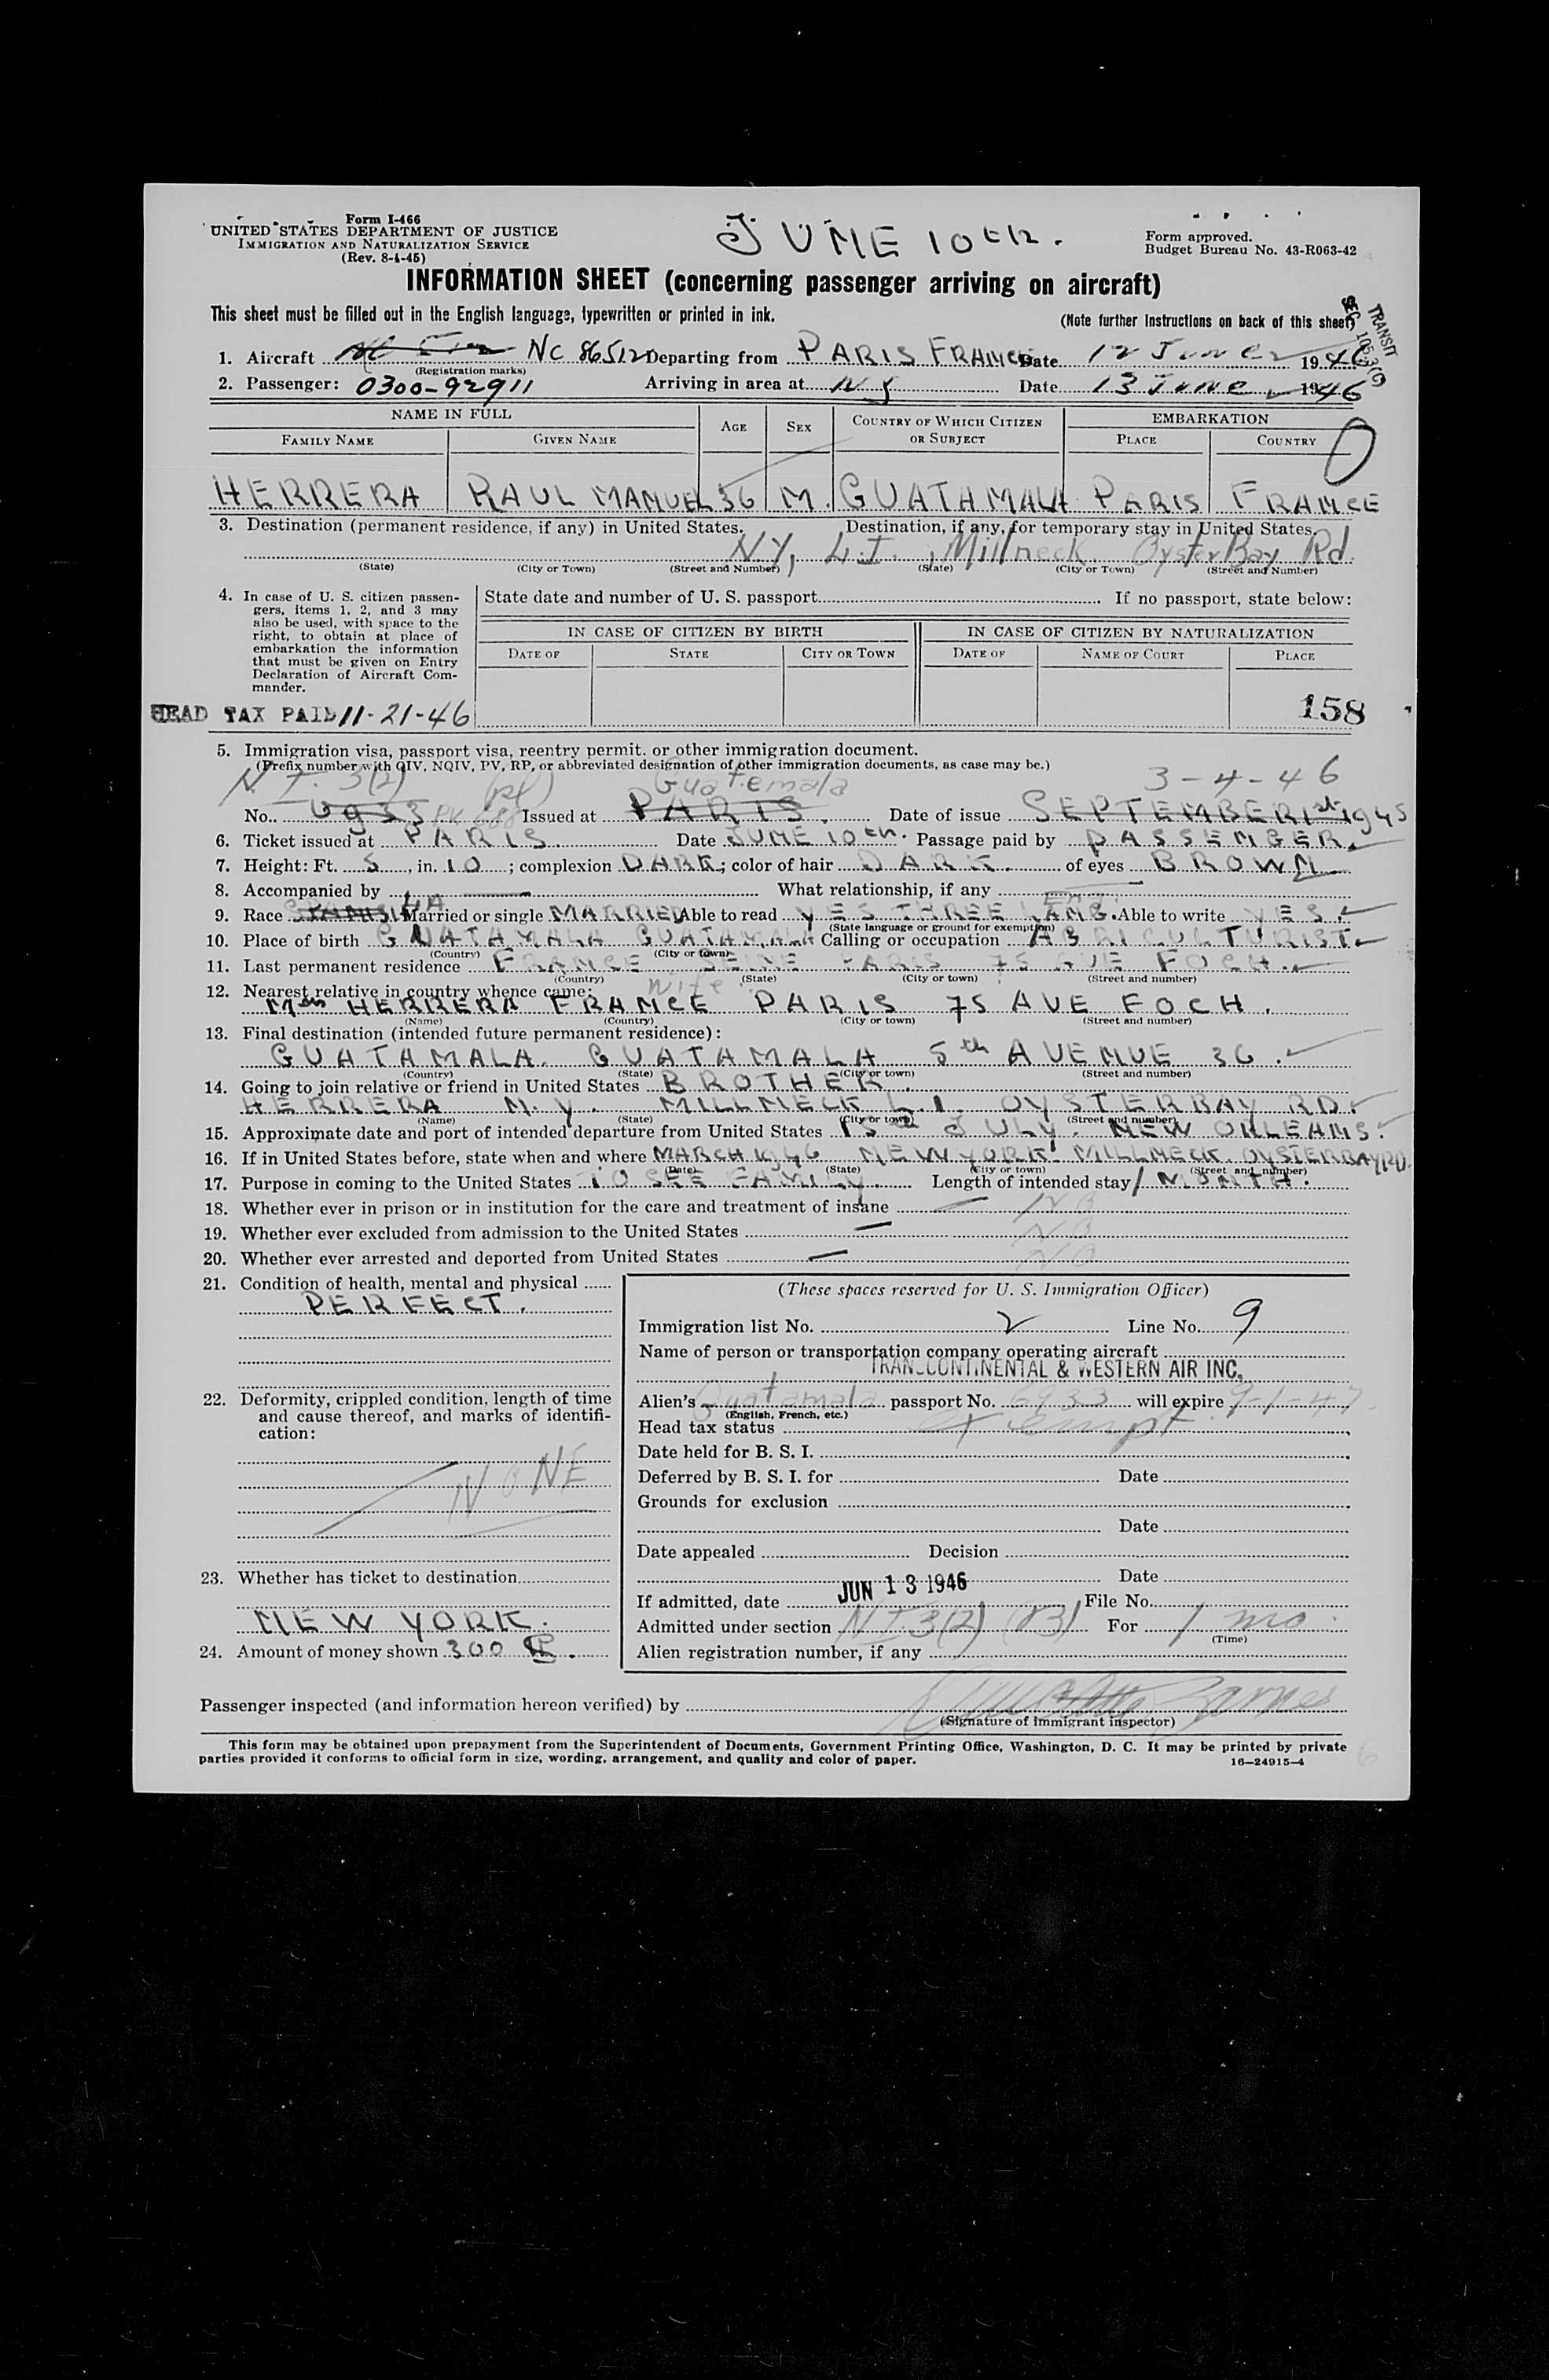 Form I-466
UNITED STATES DEPARTMENT OF JUSTICE
IMMIGRATION AND NATURALIZATION SERVICE
(Rev. 8-4-45)
JUNE 10th.
Form approved.
Budget Bureau No. 43-R063-42
INFORMATION SHEET (concerning passenger arriving on aircraft)
This sheet must be filled out in the English language, typewritten or printed in ink.
(Note further instructions on back of this sheet)
TRANSIT
SEC. 105.3(c)
1. Aircraft NC 86512 Departing from PARIS FRANCE Date 12 June 1946
(Registration marks)
2. Passenger: 0300-92911 Arriving in area at NY Date 13 June 1946
NAME IN FULL AGE SEX COUNTRY OF WHICH CITIZEN OR SUBJECT EMBARKATION
FAMILY NAME GIVEN NAME PLACE COUNTRY
HERRERA RAUL MANUEL 36 M. GUATAMALA PARIS FRANCE
3. Destination (permanent residence, if any) in United States. Destination, if any, for temporary stay in United States.
N.Y., L.I., Millneck Oyster Bay Rd.
(State) (City or Town) (Street and Number) (State) (City or Town) (Street and Number)
4. In case of U. S. citizen passengers, items 1, 2, and 3 may also be used, with space to the right, to obtain at place of embarkation the information that must be given on Entry Declaration of Aircraft Commander.
State date and number of U. S. passport If no passport, state below:
IN CASE OF CITIZEN BY BIRTH IN CASE OF CITIZEN BY NATURALIZATION
DATE OF STATE CITY OR TOWN DATE OF NAME OF COURT PLACE
HEAD TAX PAID 11-21-46
158
5. Immigration visa, passport visa, reentry permit, or other immigration document.
(Prefix number with QIV, NQIV, PV, RP, or abbreviated designation of other immigration documents, as case may be.)
N.I. 3(2) Guatemala 3-4-46
No. Issued at PARIS. Date of issue SEPTEMBER 1st 1945
6. Ticket issued at PARIS Date JUNE 10th. Passage paid by PASSENGER
7. Height: Ft. 5, in. 10; complexion DARK; color of hair DARK of eyes BROWN
8. Accompanied by What relationship, if any
9. Race Married or single MARRIED Able to read YES THREE LANG. Able to write YES.
Eng.
(State language or ground for exemption)
10. Place of birth GUATAMALA GUATAMALA Calling or occupation AGRICULTURIST
(Country) (City or town)
11. Last permanent residence FRANCE SEINE PARIS 75 AVE FOCH.
(Country) (State) (City or town) (Street and number)
12. Nearest relative in country whence came: wife
Mrs HERRERA FRANCE PARIS 75 AVE FOCH.
(Name) (Country) (City or town) (Street and number)
13. Final destination (intended future permanent residence):
GUATAMALA. GUATAMALA 5th AVENUE 36.
(Country) (State) (City or town) (Street and number)
14. Going to join relative or friend in United States BROTHER.
HERRERA N.Y. MILLNECK L.I. OYSTERBAY RD.
(Name) (State) (City or town) (Street and number)
15. Approximate date and port of intended departure from United States 15th JULY. NEW ORLEANS.
16. If in United States before, state when and where MARCH 1946 NEW YORK MILLNECK OYSTERBAY RD.
(Date) (State) (City or town) (Street and number)
17. Purpose in coming to the United States TO SEE FAMILY. Length of intended stay 1 MONTH.
18. Whether ever in prison or in institution for the care and treatment of insane NO
19. Whether ever excluded from admission to the United States NO
20. Whether ever arrested and deported from United States NO
21. Condition of health, mental and physical
PERFECT.
22. Deformity, crippled condition, length of time and cause thereof, and marks of identification:
NONE
23. Whether has ticket to destination
NEW YORK.
24. Amount of money shown 300 $.
(These spaces reserved for U. S. Immigration Officer)
Immigration list No. 2 Line No. 9
Name of person or transportation company operating aircraft
TRANSCONTINENTAL & WESTERN AIR INC.
Alien's Guatamala passport No. 6933 will expire 9-1-47
(English, French, etc.)
Head tax status exempt
Date held for B. S. I.
Deferred by B. S. I. for Date
Grounds for exclusion
Date
Date appealed Decision
Date
If admitted, date JUN 13 1946 File No.
Admitted under section NI 3(2) (83) For 1 mo.
(Time)
Alien registration number, if any
Passenger inspected (and information hereon verified) by Barnes
(Signature of immigrant inspector)
This form may be obtained upon prepayment from the Superintendent of Documents, Government Printing Office, Washington, D. C. It may be printed by private
parties provided it conforms to official form in size, wording, arrangement, and quality and color of paper.
16—24915-4